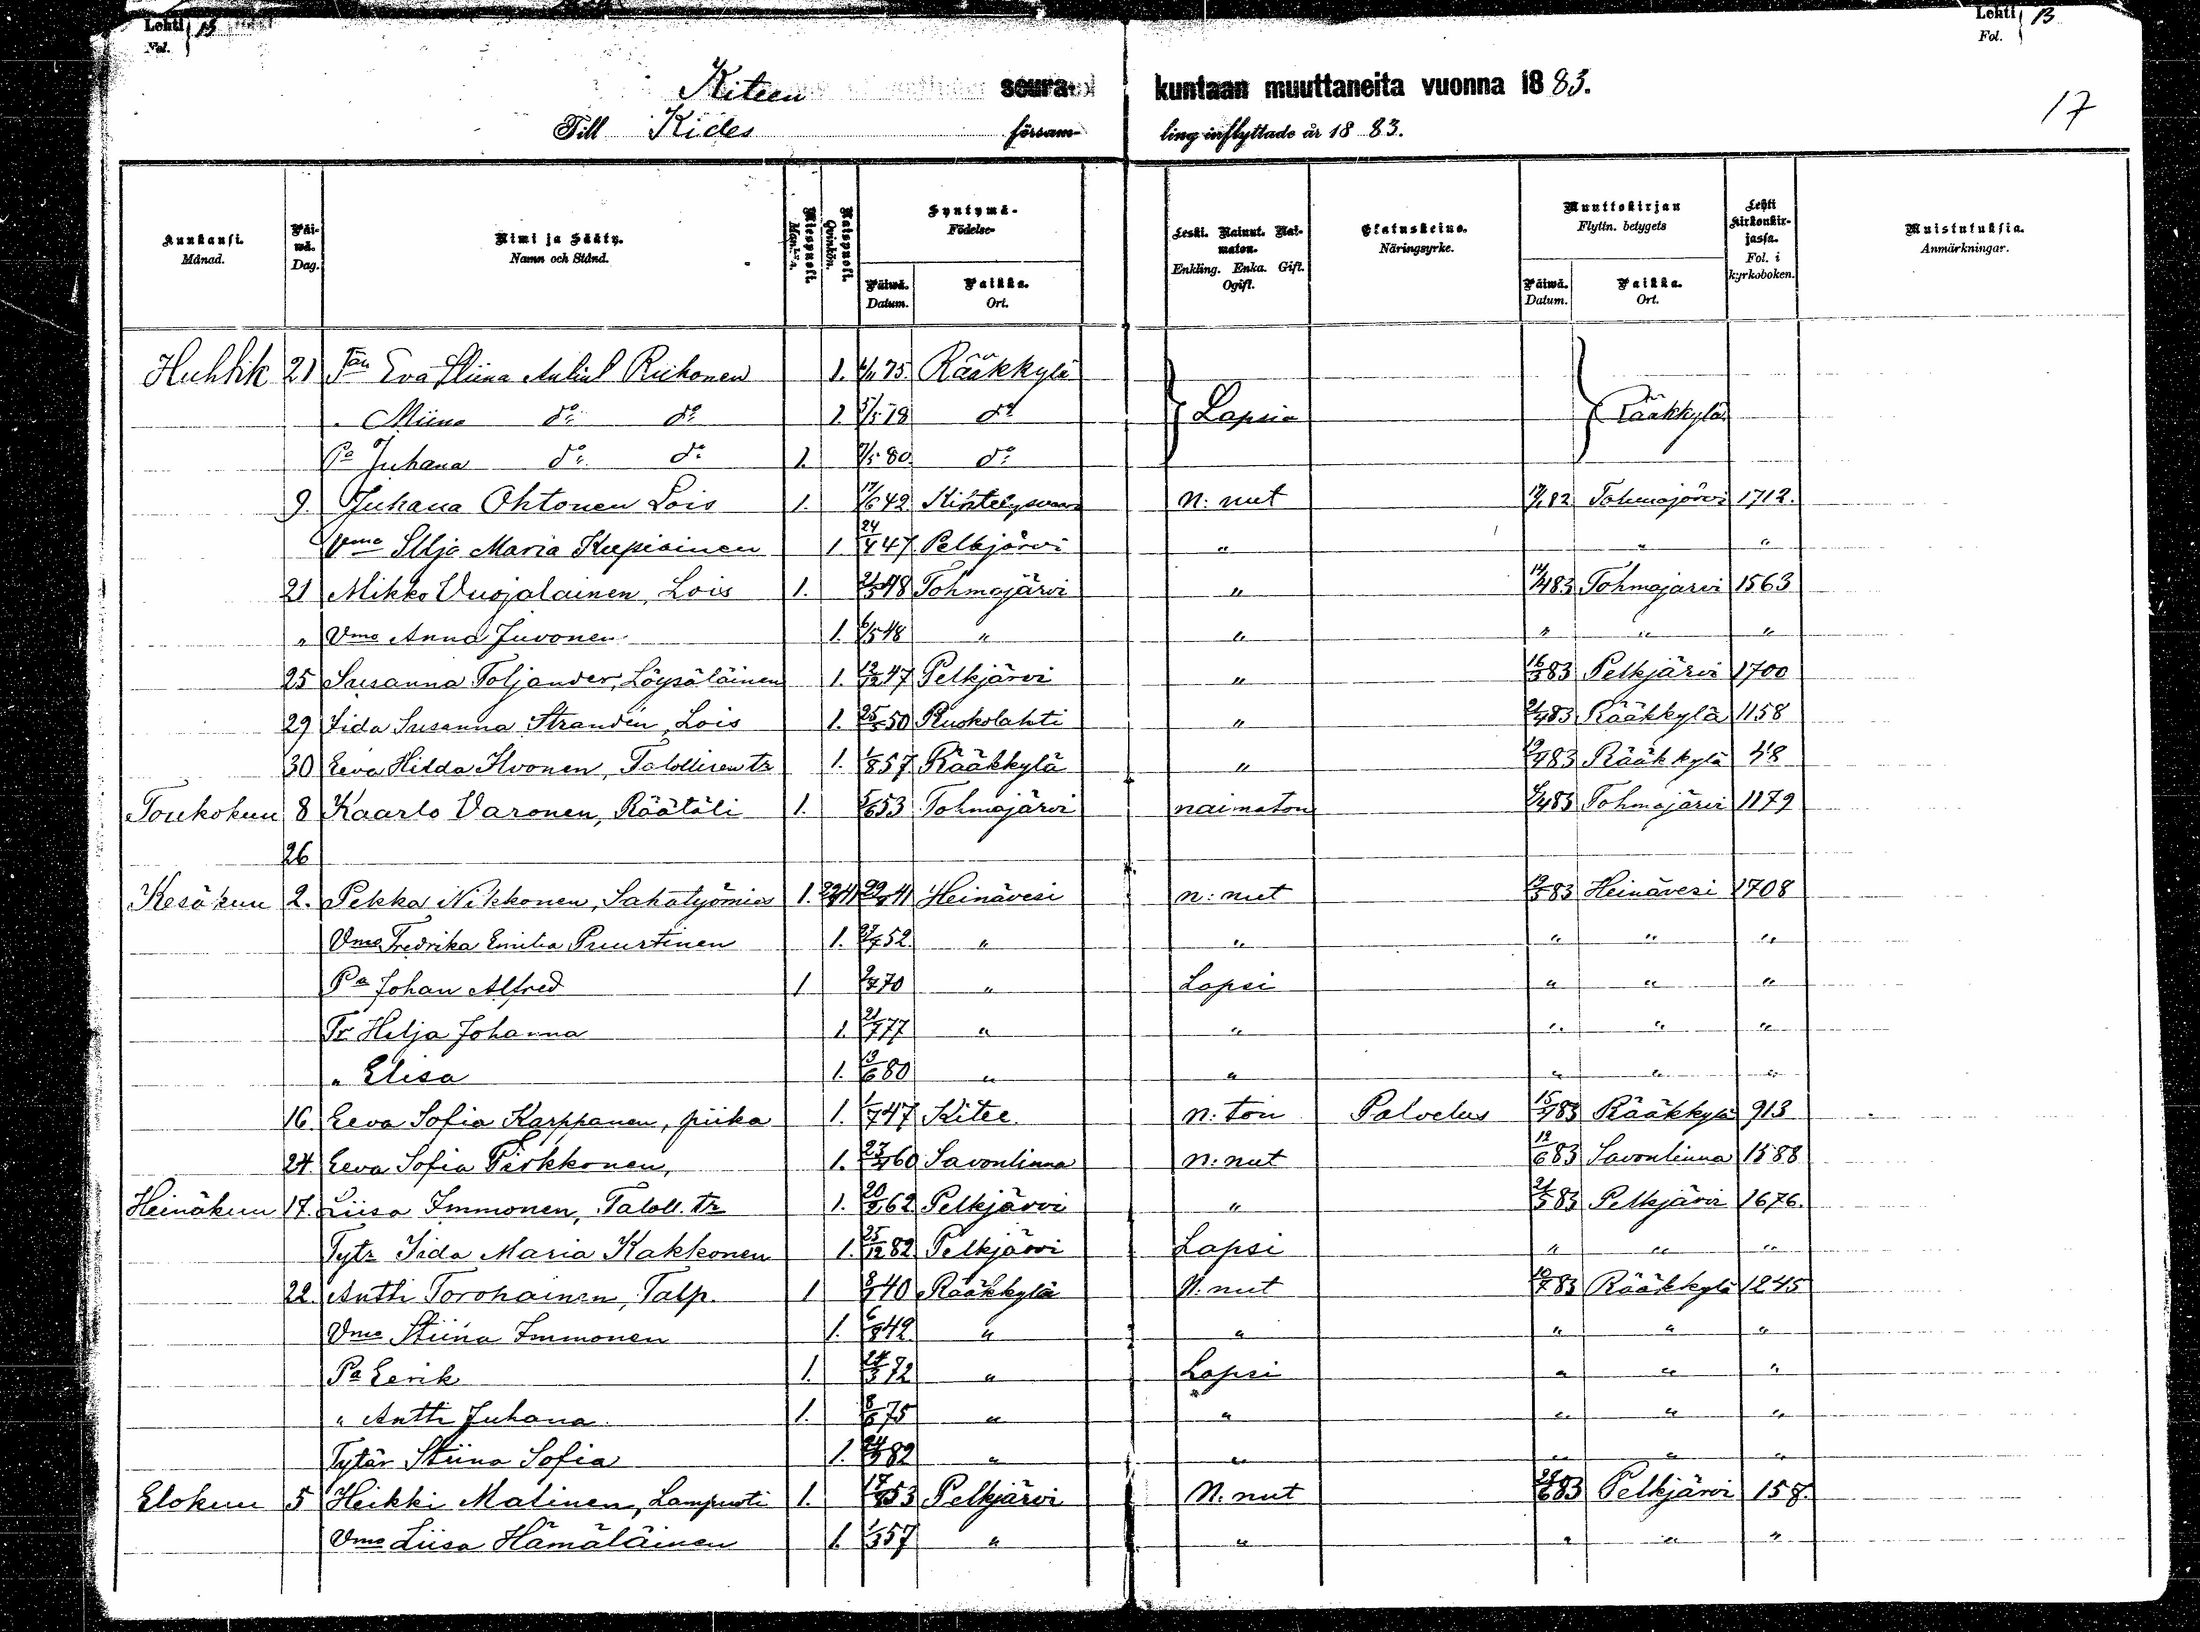 Lehti Fol. 13
Lehti Fol. 13
Kiteen seurakuntaan muuttaneita vuonna 1883.
Till Kides församling inflyttade år 1883.
17
Kuukausi. Månad. | Päiwä. Dag. | Nimi ja Sääty. Namn och Stånd. | Miespuoli. Mank:n. | Naispuoli. Qvinkön. | Syntymä- Födelse- Päiwä. Datum. | Paikka. Ort. | Leski. Nainut. Naimaton. Enkling. Enka. Gift. Ogift. | Elatuskeino. Näringsyrke. | Muuttokirjan Flyttn. betygets Päiwä. Datum. | Paikka. Ort. | Lehti kirkonkirjassa. Fol. i kyrkoboken. | Muistutuksia. Anmärkningar.
Huhtik 21 Eva Stiina Riikonen 1. 75 Rääkkylä
" Miina do do 1. 5/5 78 do Lapsia Rääkkylä
Pa Juhana do do 1. 80 do
9. Juhana Ohtonen Lois 1. 17/6 42 n: nut 82 Tohmajärvi 1712.
Vmo Silja Maria Kupiainen 1 24/4 47 Pelkjärvi " " "
21 Mikko Vuojalainen, Lois 1. 48 Tohmajärvi " 14/4 83 Tohmajärvi 1563
" Vmo Anna Juvonen 1. 6/5 48 " " " " "
25 Susanna Toljander, Löysäläinen 1. 12/12 47 Pelkjärvi " 16/3 83 Pelkjärvi 1700
29 Iida Susanna Strandén, Lois 1. 50 Ruokolahti " 21/4 83 Rääkkylä 1158
30 Eeva Hilda Ilvonen, Talollisen tr 1. 1/8 57 Rääkkylä " 83 Rääkkylä 48
Toukokuu 8 Kaarlo Varonen, Räätäli 1. 5/6 53 Tohmajärvi naimaton 83 Tohmajärvi 1179
26
Kesäkuu 2. Pekka Nikkonen, Sahatyömies 1. 41 Heinävesi n: nut 83 Heinävesi 1708
Vmo Fredrika Emilia Puurtinen 1. 52 " " " " "
Pa Johan Alfred 1 70 " Lapsi " " "
Tr Hilja Johanna 1. 21/7 77 " " " " "
" Elisa 1. 13/6 80 " " " " "
16. Eeva Sofia Karppanen, piika 1. 1/7 47 Kitee n: ton Palvelus 15/4 83 Rääkkylä 913
24. Eeva Sofia Pirkkonen, 1. 60 Savonlinna n: nut 12/6 83 Savonlinna 1588
Heinäkuu 17. Liisa Immonen, Taloll. tr 1. 62 Pelkjärvi " 21/5 83 Pelkjärvi 1676.
Tytr Iida Maria Kakkonen 1. 25/12 82 Pelkjärvi Lapsi " " "
22. Antti Torohainen, Talp. 1 40 Rääkkylä N. nut 10/7 83 Rääkkylä 1245
Vmo Stiina Immonen 1. 6/8 42 " " " " "
Pa Eerik 1. 24/3 72 " Lapsi " " "
" Antti Juhana 1. 8/6 75 " " " " "
Tytär Stiina Sofia 1. 82 " " " " "
Elokuu 5 Heikki Malinen, Lampuoti 1. 53 Pelkjärvi N. nut 83 Pelkjärvi 158.
Vmo Liisa Hämäläinen 1. 1/3 57 " " " " "